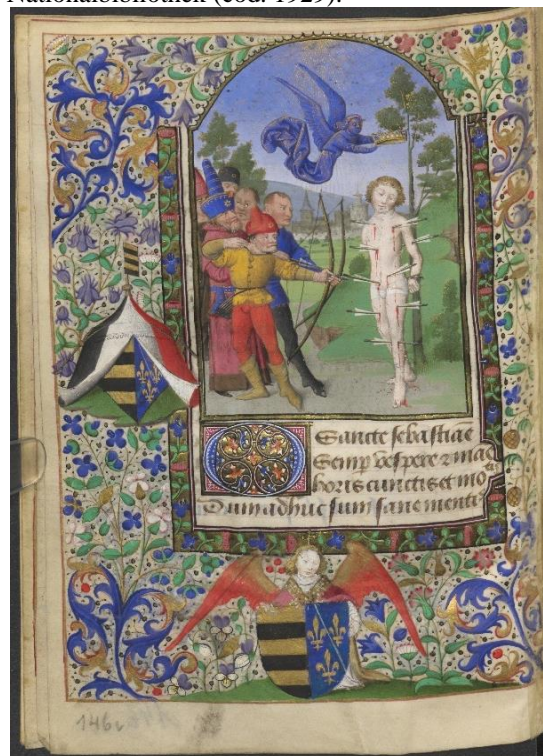 Nationalbibliothek (cod. 1929).
O Sancte sebastiãe
Semp vespere ⁊ mãe
horis cunctis et mo
Dum adhuc sum sane menti
146v